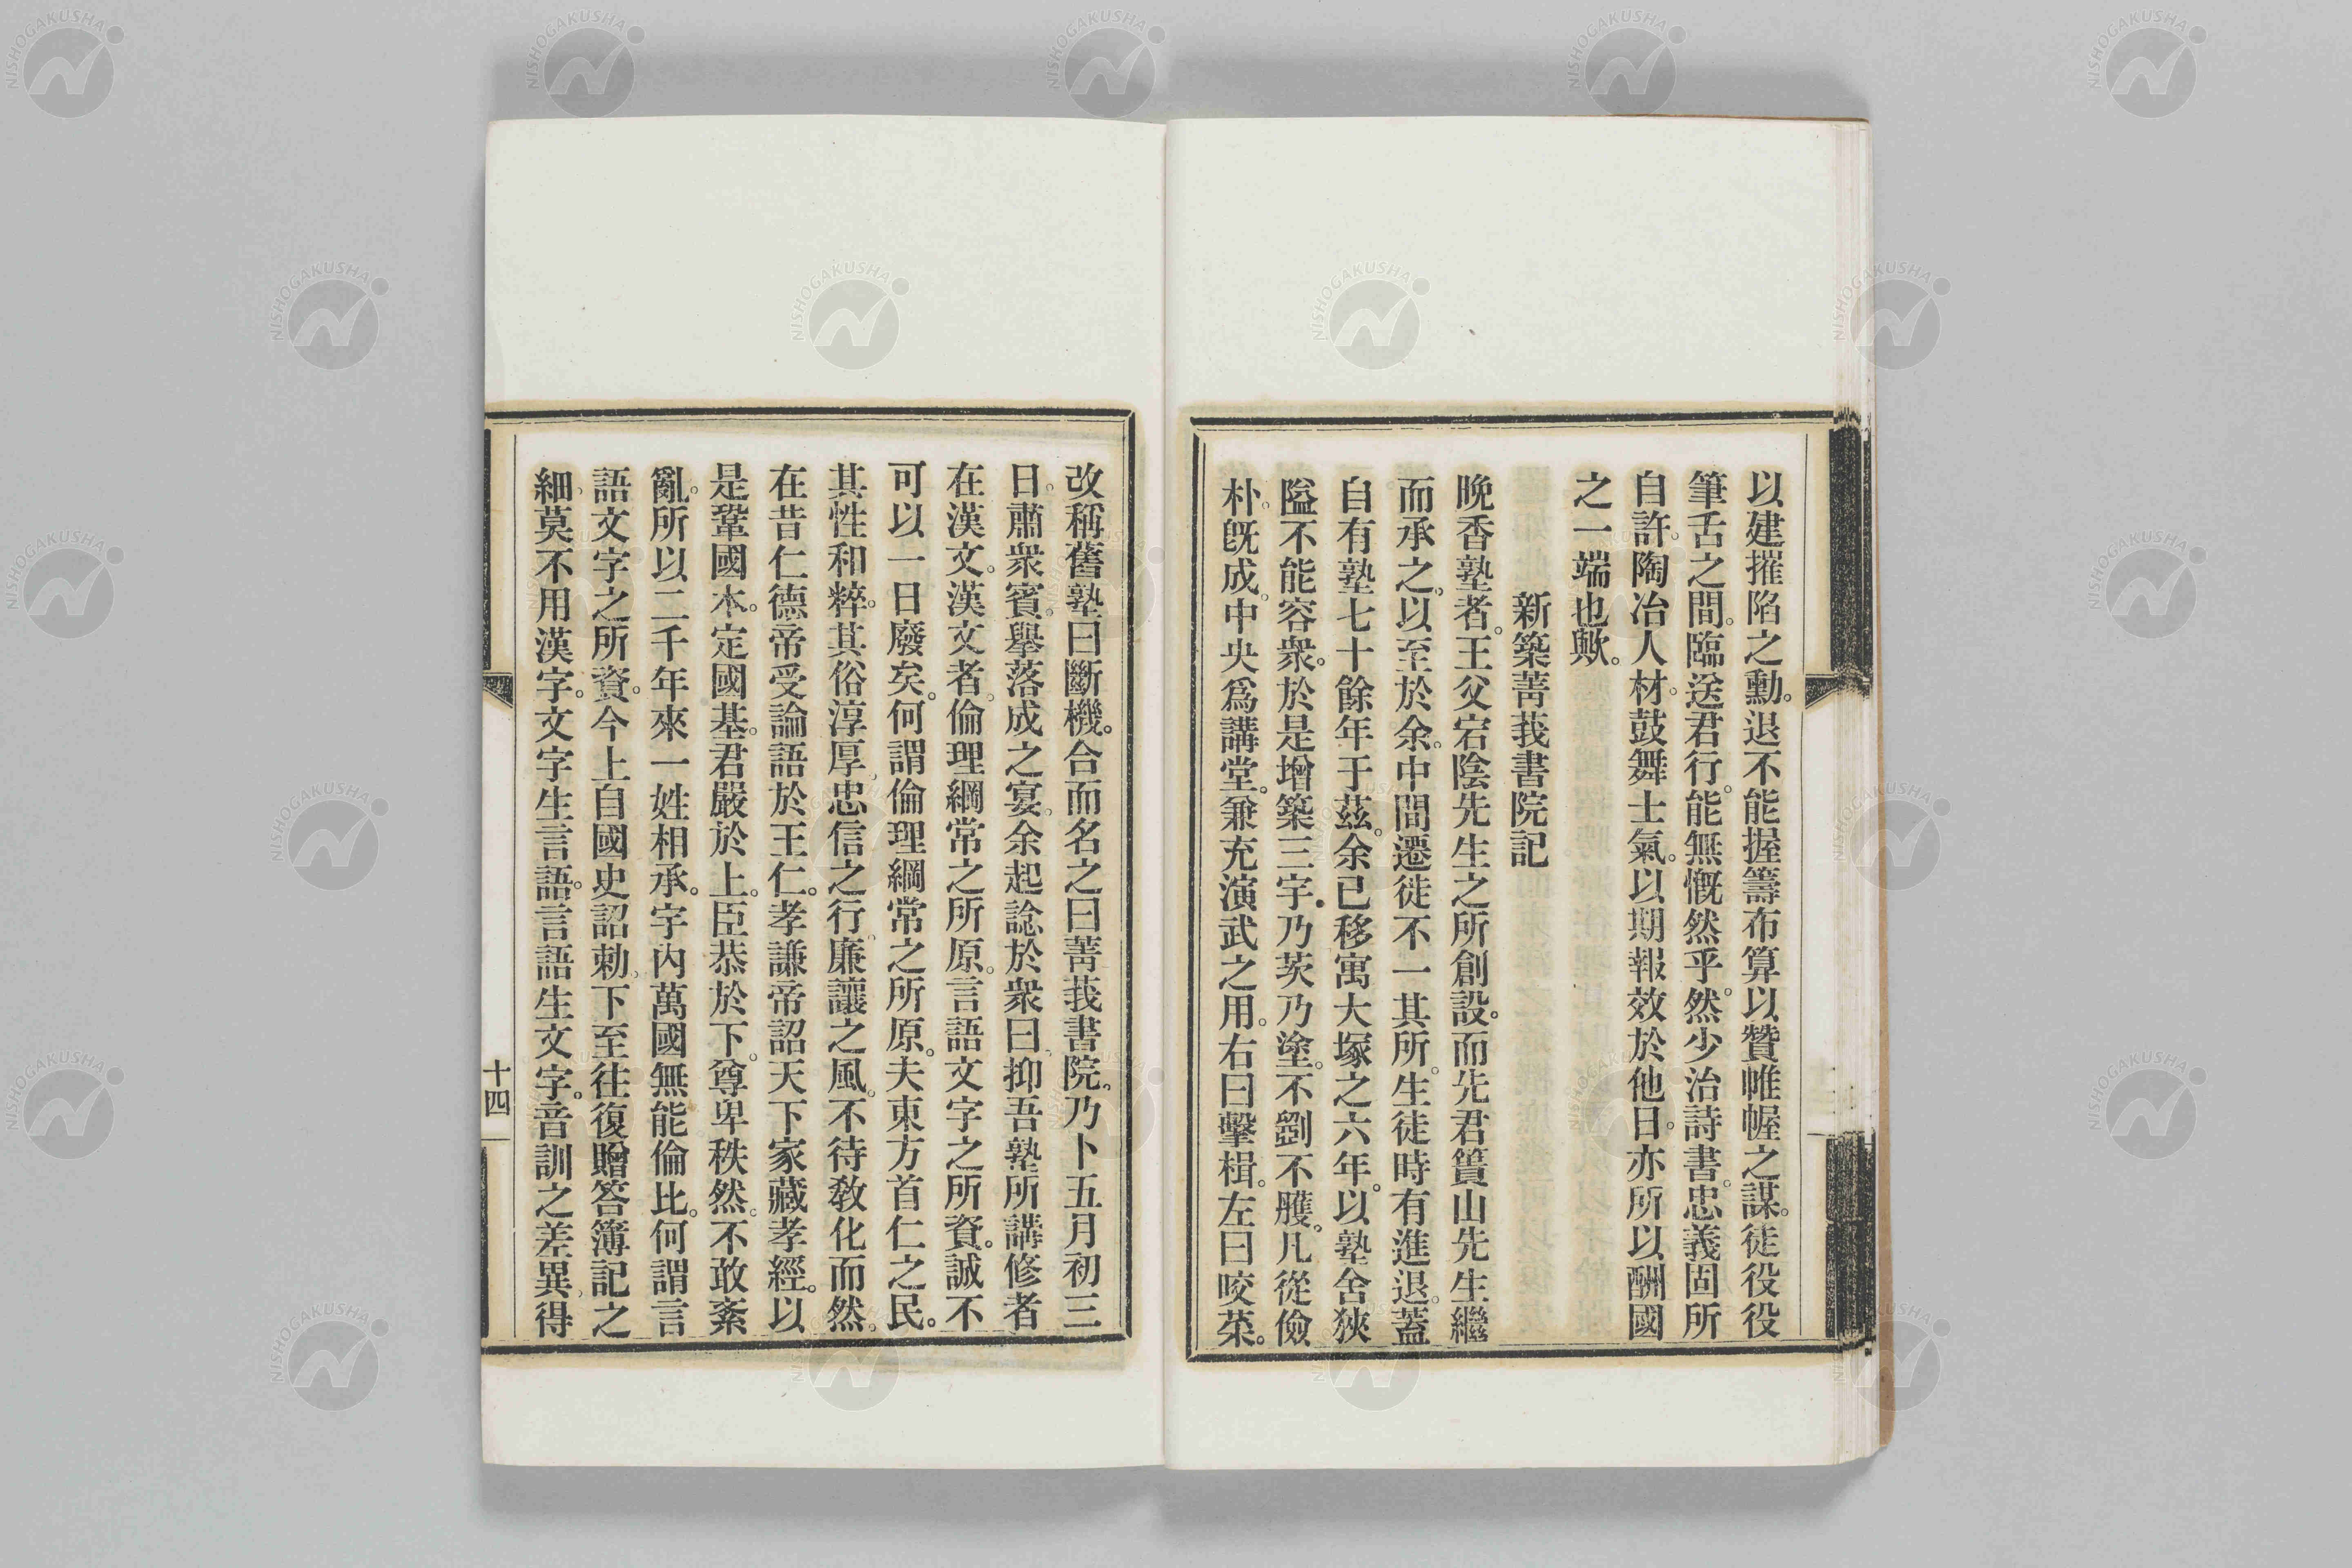 以建摧陷之勳。退不能握籌布算以贊帷幄之謀。徒役役
筆舌之間。臨送君行。能無慨然乎。然少治詩書。忠義固所
自許。陶冶人材。鼓舞士氣。以期報效於他日。亦所以酬國
之一端也歟。
新築菁莪書院記
晚香塾者。王父宕陰先生之所創設。而先君簣山先生繼
而承之。以至於余。中間遷徒不一其所。生徒時有進退。蓋
自有塾七十餘年于茲。余已移寓大塚之六年。以塾舍狹
隘不能容衆。於是增築三宇。乃茨乃塗。不劉不雘。凡從儉
朴。既成。中央爲講堂。兼充演武之用。右曰擊楫。左曰咬菜。
改稱舊塾曰斷機。合而名之曰菁莪書院。乃卜五月初三
日。肅衆賓。擧落成之宴。余起諗於衆曰。抑吾塾所講修者
在漢文。漢文者。倫理綱常之所原。言語文字之所資。誠不
可以一日廢矣。何謂倫理綱常之所原。夫東方首仁之民。
其性和粹。其俗淳厚。忠信之行。廉讓之風。不待敎化而然。
在昔仁德帝受論語於王仁。孝謙帝詔天下家藏孝經。以
是鞏國本。定國基。君嚴於上。臣恭於下。尊卑秩然。不敢紊
亂。所以二千年來一姓相承。宇內萬國無能倫比。何謂言
語文字之所資。今上自國史詔勅。下至往復贈答簿記之
細。莫不用漢字。文字生言語。言語生文字。音訓之差異。得
十四
NISHOGAKUSHA